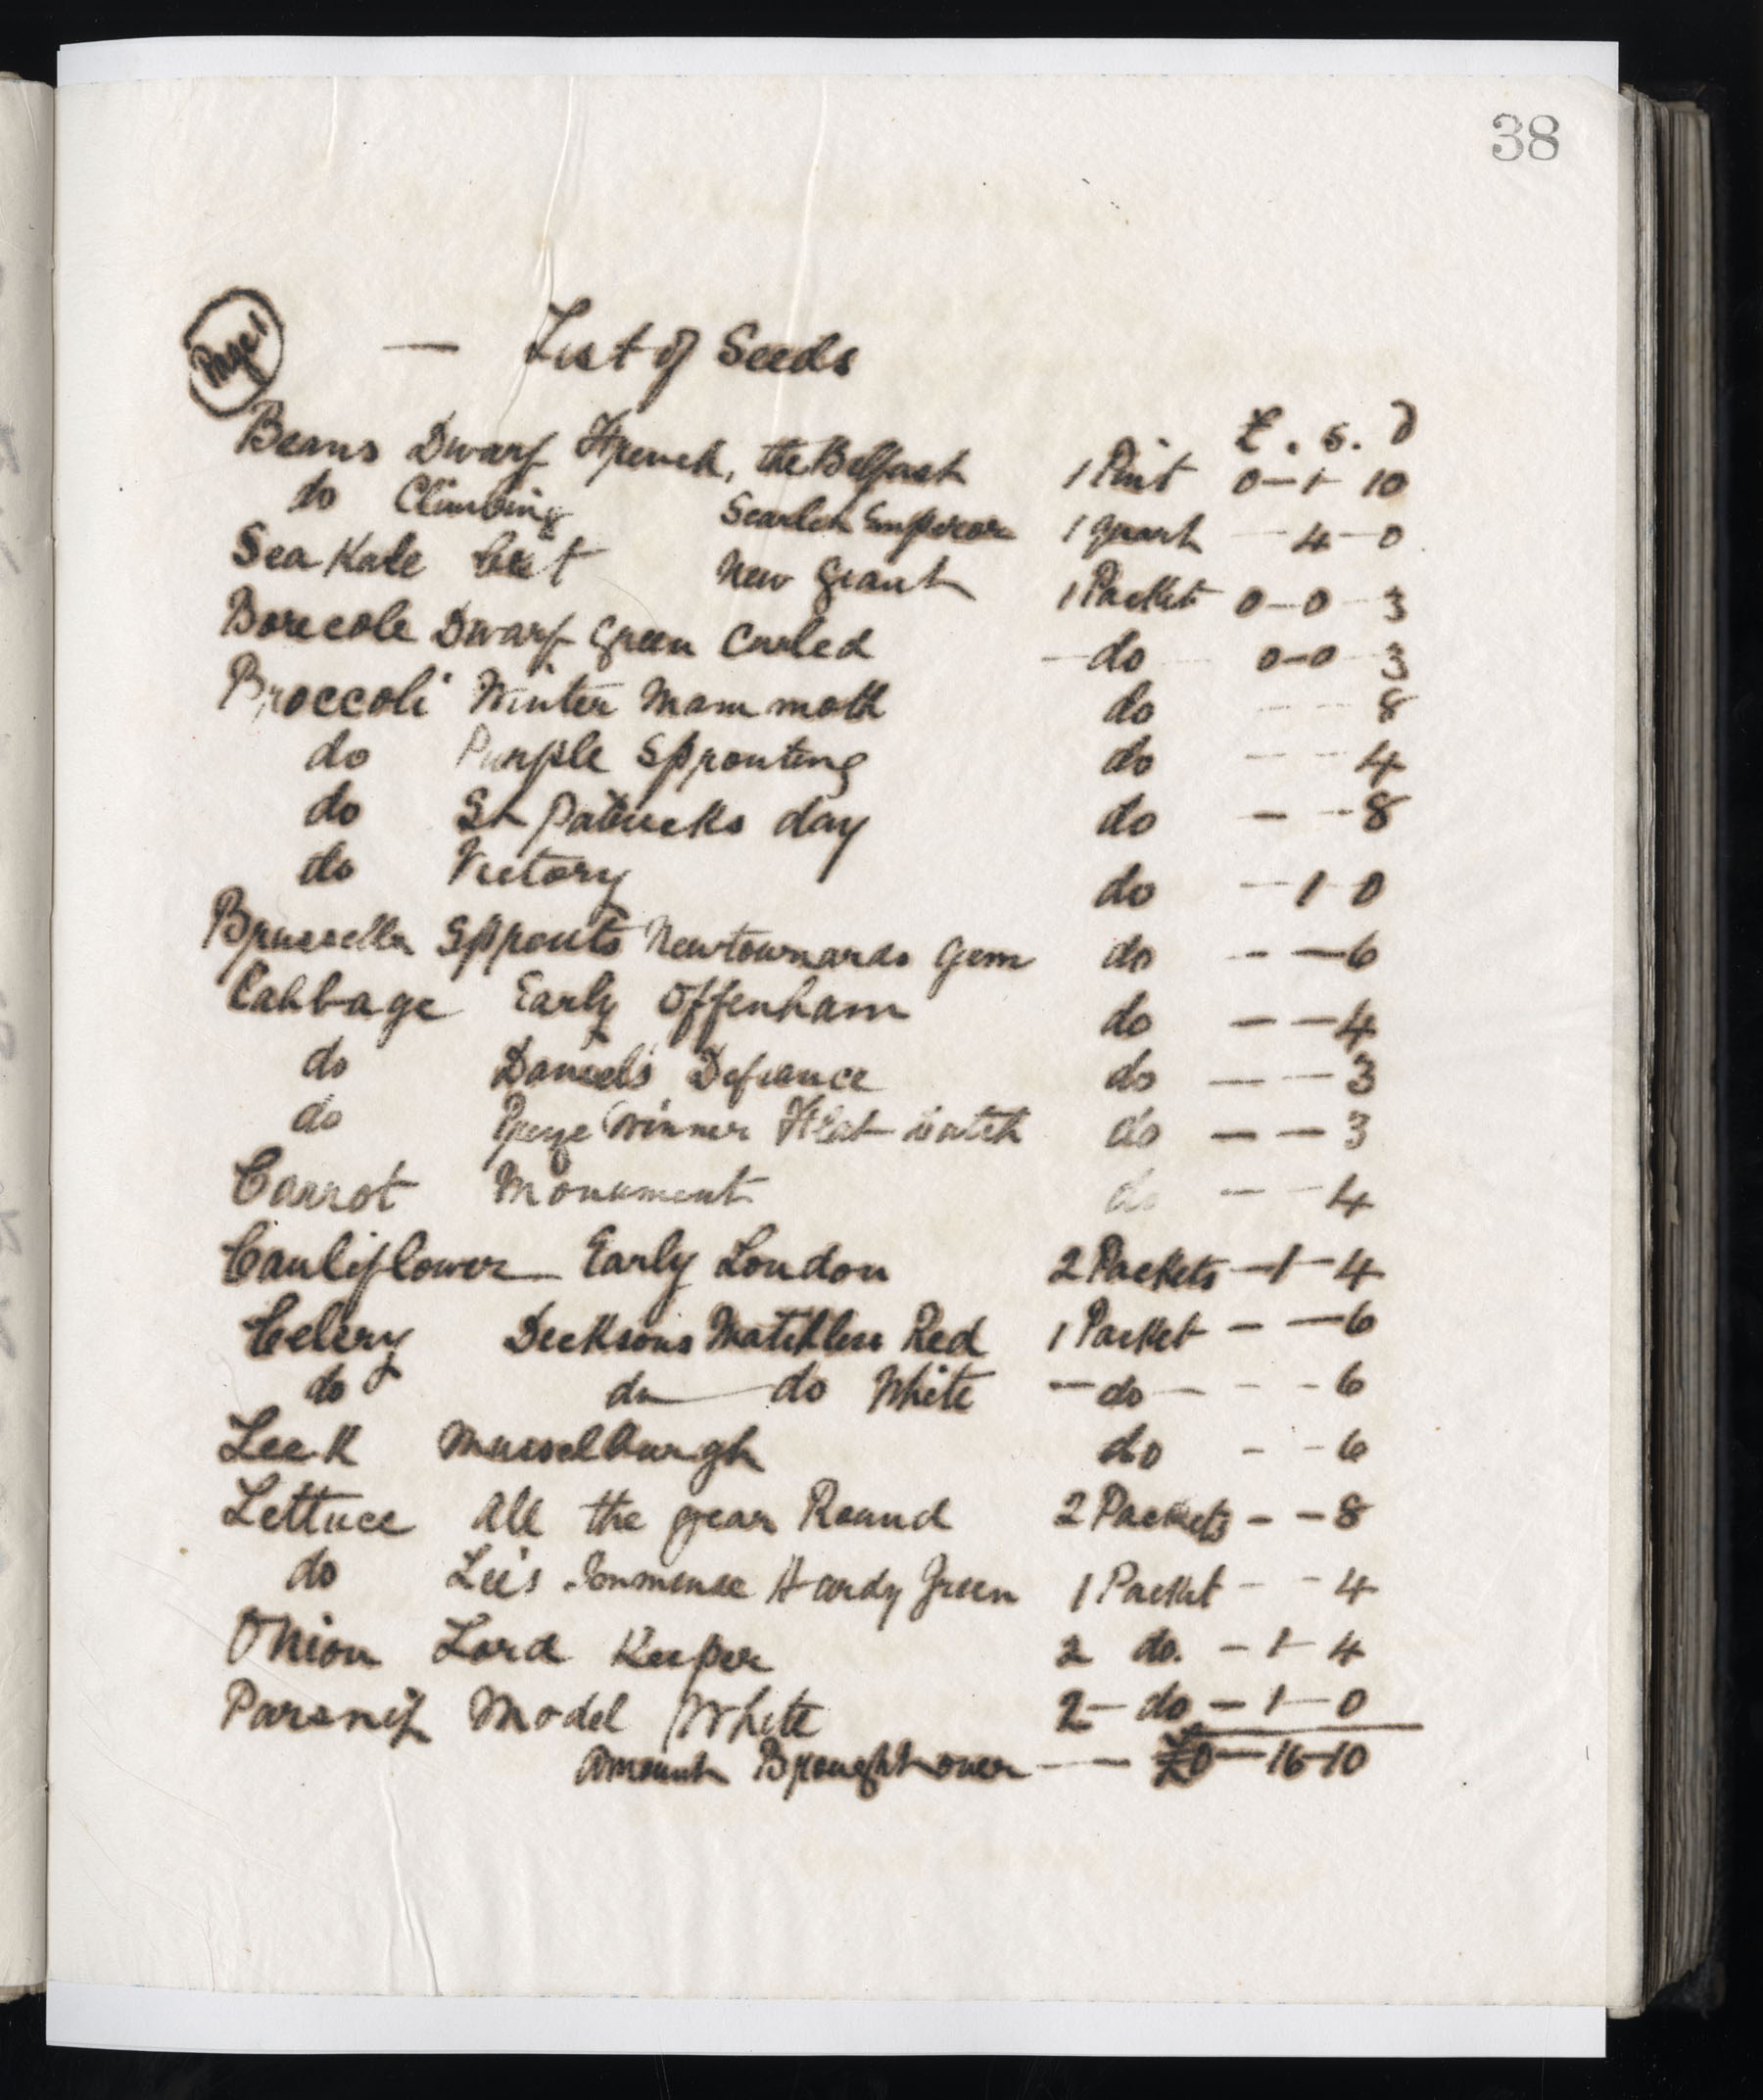 38
Page 1
— List of Seeds
£ . s. d
Beans Dwarf French, the Belfast 1 Pint 0–1–10
do Climbing Scarlet Emperor 1 quart – 4–0
Sea Kale beet New Giant 1 Packet 0–0–3
Borecole Dwarf Green Curled – do 0–0 3
Broccoli Winter Mammoth do – – 8
do Purple Sprouting do – – 4
do St Patricks day do – – 8
do Victory do – 1 0
Brussells Sprouts Newtownards Gem do – – 6
Cabbage Early Offenham do – – 4
do Daniels Defiance do – – 3
do Prize Winner Flat Dutch do – – 3
Carrot Monument do – – 4
Cauliflower Early London 2 Packets – 1 – 4
Celery Dicksons Matchless Red 1 Packet – – 6
do do do White – do – – – 6
Leek Musselburgh do – – 6
Lettuce All the year Round 2 Packets – – 8
do Lee's Immense Hardy Green 1 Packet – – 4
Onion Lord Keeper 2 do. – 1 – 4
Parsnip Model White 2 – do – 1 – 0
Amount Brought over — £0 – 16–10